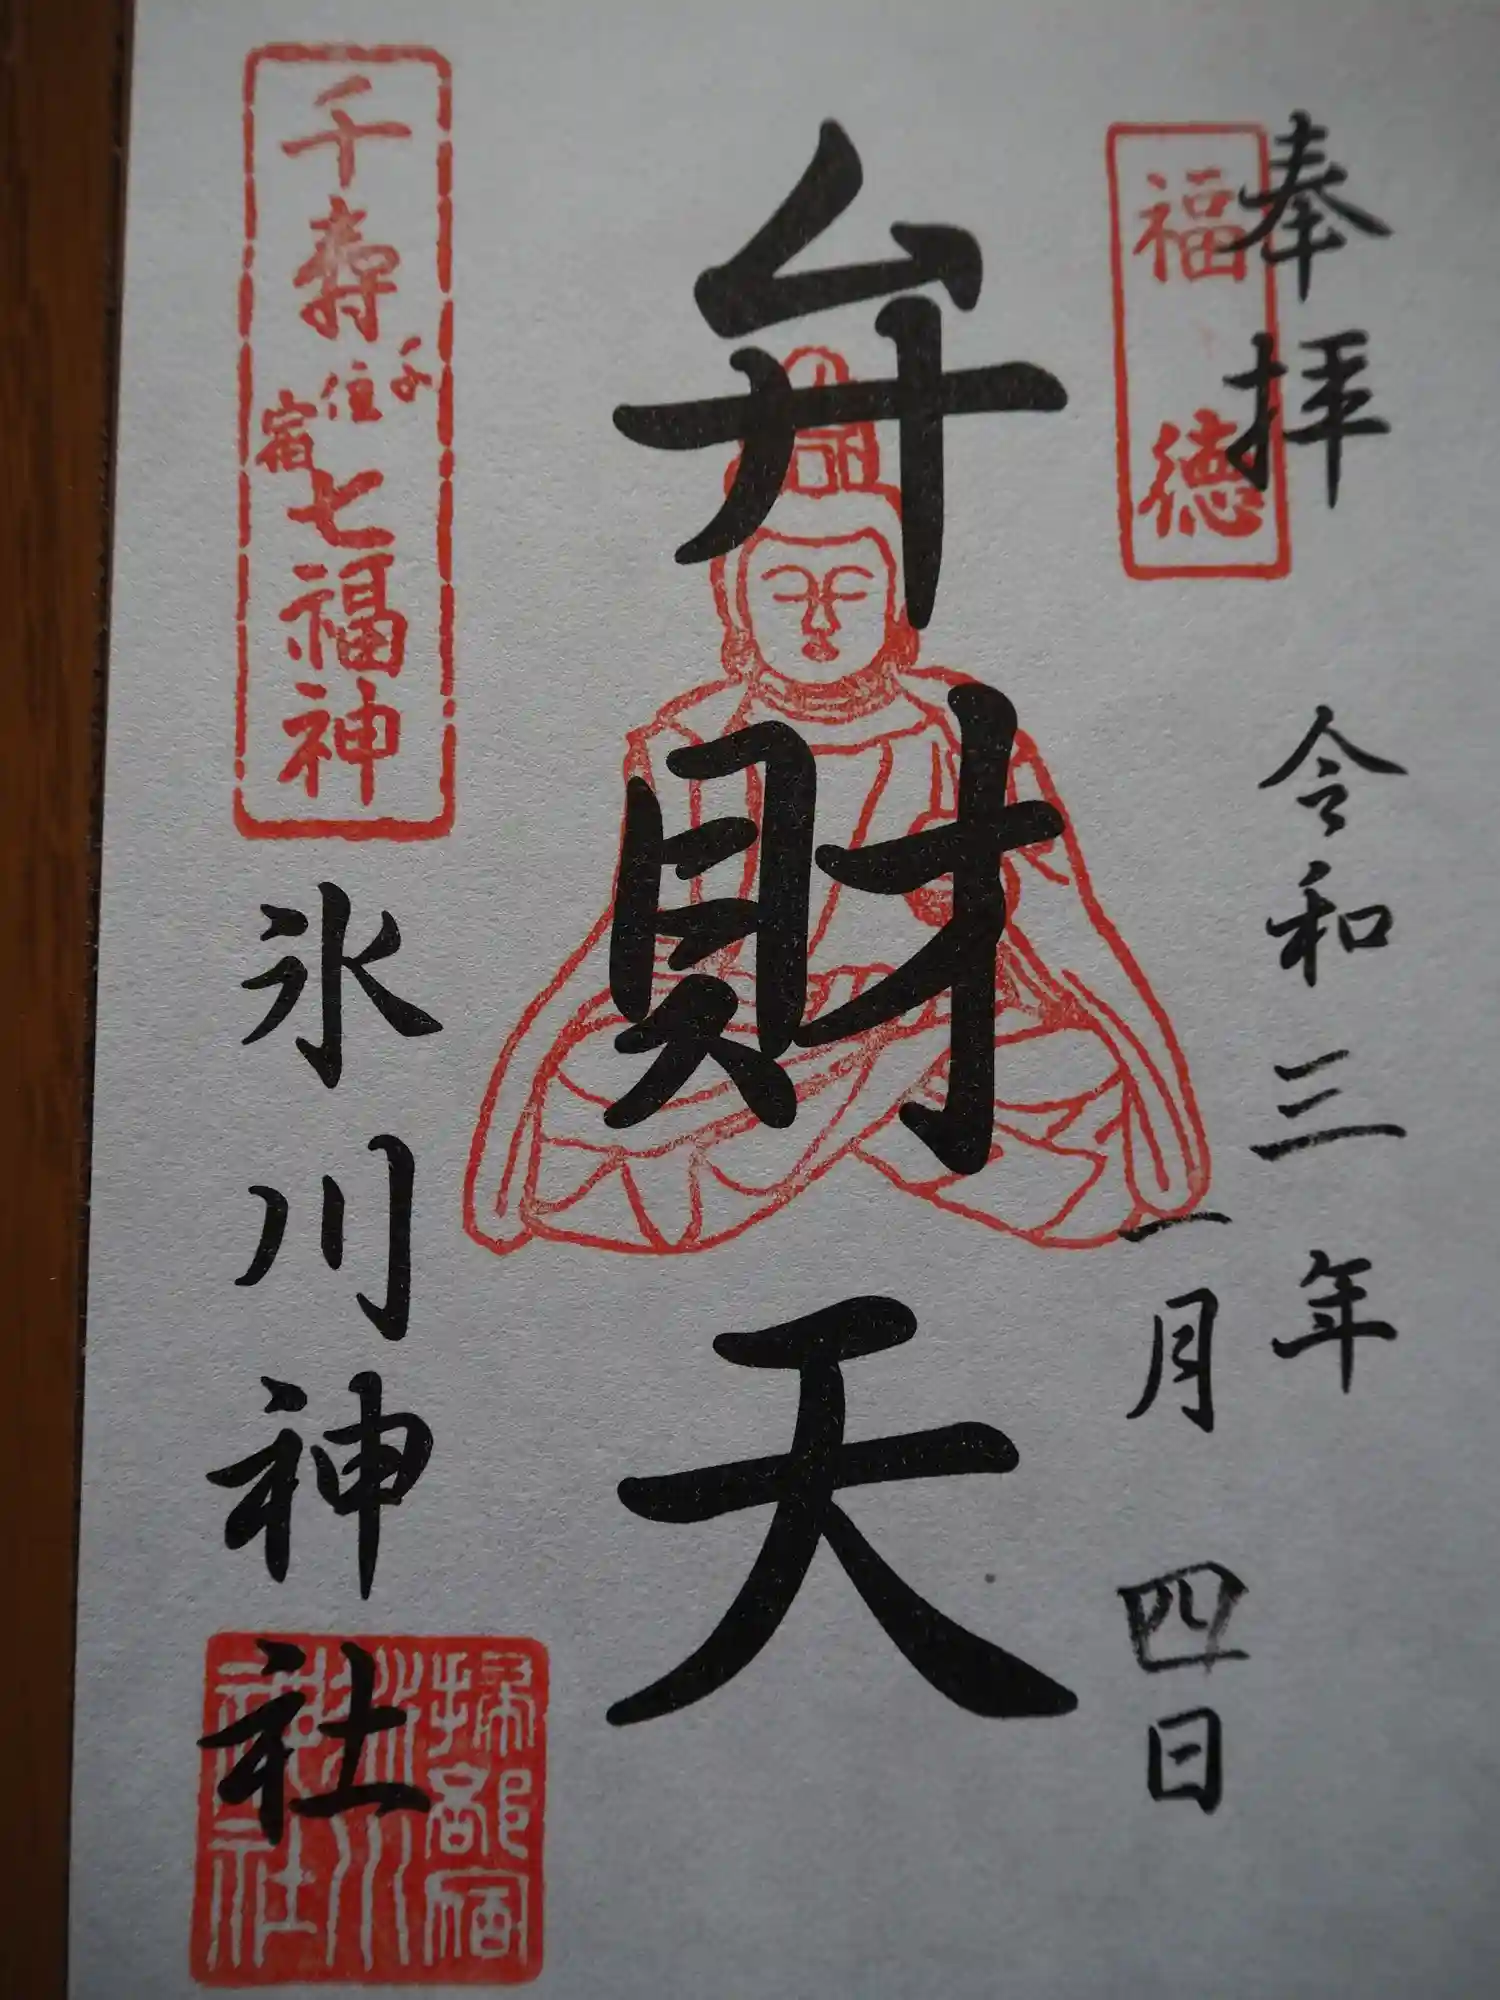 奉拝
福徳
令和三年
一月四日
弁財天
千寿
千住宿
七福神
氷川神社
掃部宿
氷川
神社